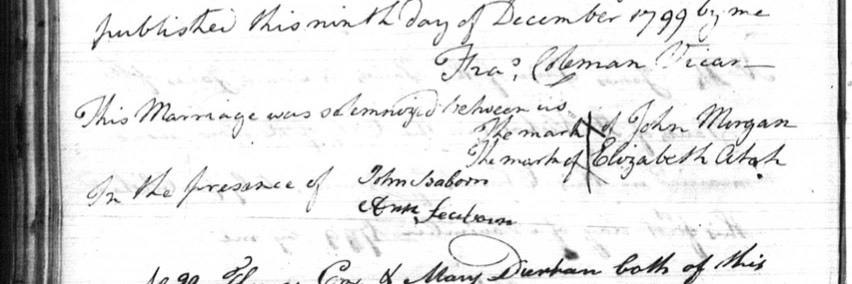 published this ninth day of December 1799 by me
Thos. Coleman Vicar
This Marriage was solemnized between us
The mark X of John Morgan
The mark of X Elizabeth
In the presence of John
Ann
No. 99 Cox & Mary Durhan both of this